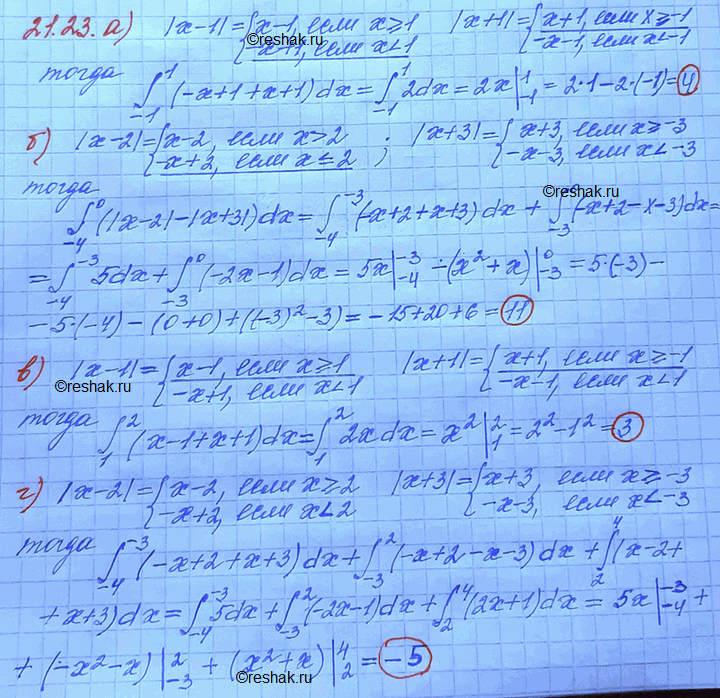 21.23. а) |x-1|={x-1, если x≥1 |x+1|={x+1, если x≥-1
©reshak.ru
-x+1, если x<1 -x-1, если x<-1
тогда ∫₋₁¹(-x+1+x+1)dx=∫₋₁¹2dx=2x|₋₁¹=2·1-2·(-1)=4
б) |x-2|={x-2, если x>2 ; |x+3|={x+3, если x≥-3
-x+2, если x≤2 -x-3, если x<-3
тогда
©reshak.ru
∫₋₄⁰(|x-2|-|x+3|)dx=∫₋₄⁻³(-x+2+x+3)dx+∫₋₃⁰(-x+2-x-3)dx=
=∫₋₄⁻³5dx+∫₋₃⁰(-2x-1)dx=5x|₋₄⁻³-(x²+x)|₋₃⁰=5·(-3)-
-5·(-4)-(0+0)+((-3)²-3)=-15+20+6=11
в) |x-1|={x-1, если x≥1 |x+1|={x+1, если x≥-1
-x+1, если x<1 -x-1, если x<1
©reshak.ru
©reshak.ru
тогда ∫₁²(x-1+x+1)dx=∫₁²2xdx=x²|₁²=2²-1²=3
г) |x-2|={x-2, если x≥2 |x+3|={x+3, если x≥-3
-x+2, если x<2 -x-3, если x<-3
тогда ∫₋₄⁻³(-x+2+x+3)dx+∫₋₃²(-x+2-x-3)dx+∫₂⁴(x-2+
+x+3)dx=∫₋₄⁻³5dx+∫₋₃²(-2x-1)dx+∫₂⁴(2x+1)dx=5x|₋₄⁻³+
+(-x²-x)|₋₃²+(x²+x)|₂⁴=-5
©reshak.ru